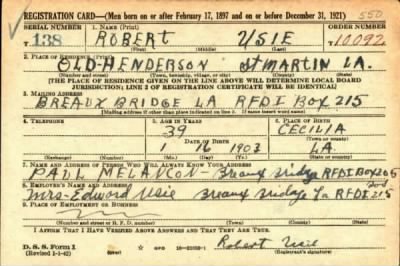 REGISTRATION CARD—(Men born on or after February 17, 1897 and on or before December 31, 1921) 550
SERIAL NUMBER 1. NAME (Print) ORDER NUMBER
T 138 ROBERT USIE 10092
(First) (Middle) (Last)
2. PLACE OF RESIDENCE (Print)
OLD-HENDERSON St MARTIN LA.
(Number and street) (Town, township, village, or city) (County) (State)
[THE PLACE OF RESIDENCE GIVEN ON THE LINE ABOVE WILL DETERMINE LOCAL BOARD
JURISDICTION; LINE 2 OF REGISTRATION CERTIFICATE WILL BE IDENTICAL]
3. MAILING ADDRESS
BREAUX BRIDGE LA RFDI BOX 215
[Mailing address if other than place indicated on line 2. If same insert word same]
4. TELEPHONE 5. AGE IN YEARS 6. PLACE OF BIRTH
39 CECILIA
DATE OF BIRTH (Town or county)
1 16 1903 LA.
(Exchange) (Number) (Mo.) (Day) (Yr.) (State or country)
7. NAME AND ADDRESS OF PERSON WHO WILL ALWAYS KNOW YOUR ADDRESS
PAUL MELANCON - Breaux Bridge RFDI BOX 205
8. EMPLOYER'S NAME AND ADDRESS
Mrs - Edward Usie Breaux Bridge La RFDI 215
9. PLACE OF EMPLOYMENT OR BUSINESS
(Number and street or R. F. D. number) (Town) (County) (State)
I AFFIRM THAT I HAVE VERIFIED ABOVE ANSWERS AND THAT THEY ARE TRUE.
D. S. S. Form 1 GPO Robert Usie
(Revised 1-1-42) (Registrant's signature)